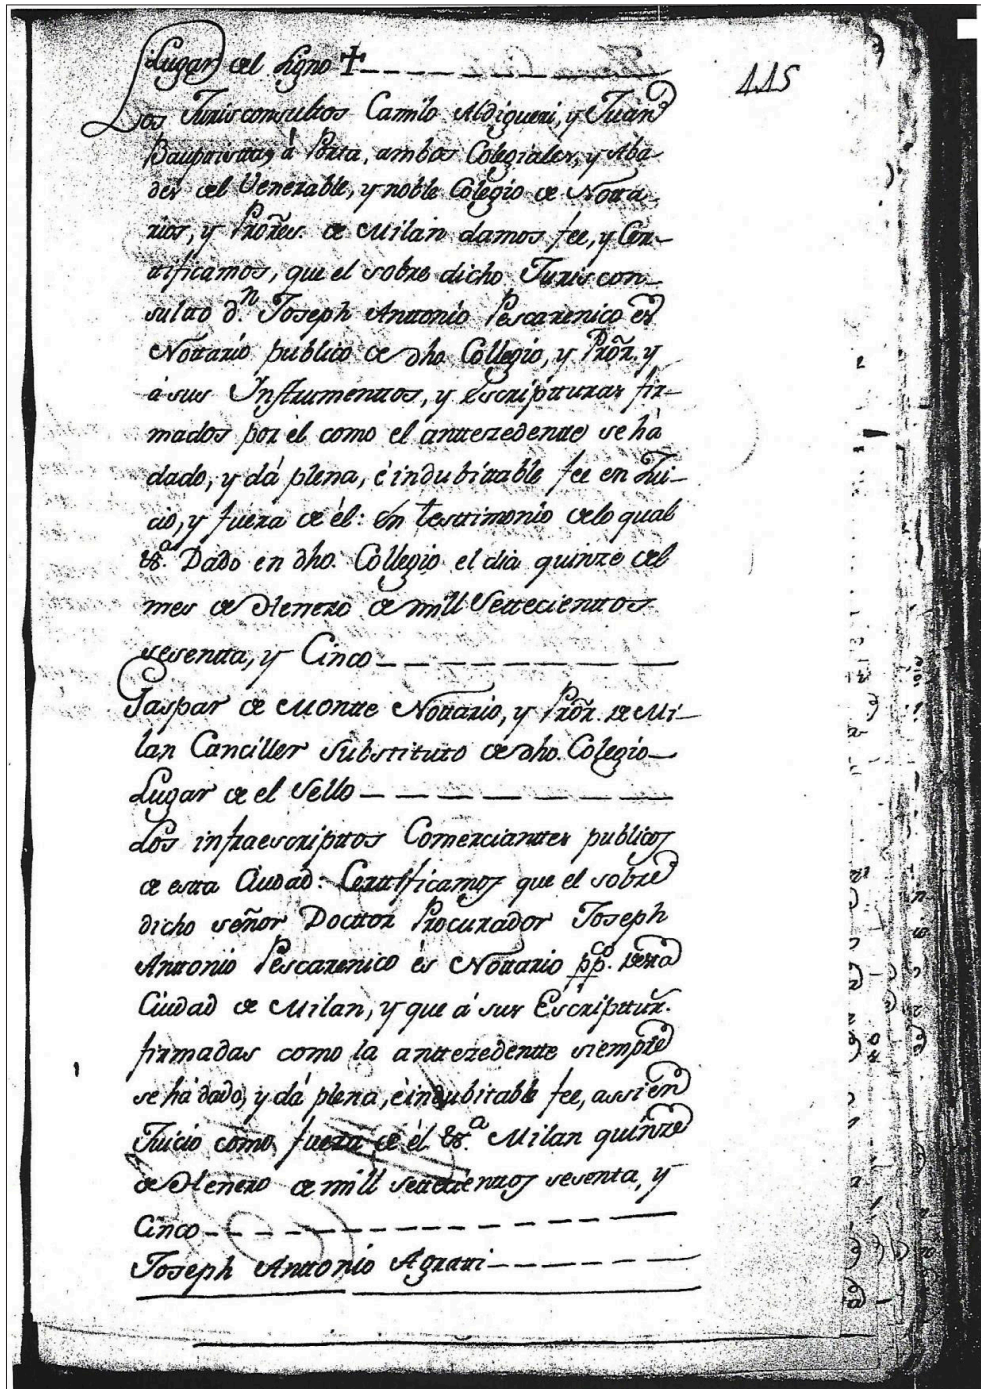 115
Lugar del signo †
Los Jurisconsultos Camilo Aldigueri, y Juan
Bauptista, á Porta, ambos Colegiales, y Aba
des del Venerable, y noble Colegio de Notta
rios, y Prores. de Milan damos fee, y Cer-
tificamos, que el sobre dicho Juriscon-
sultto dn. Joseph Anttonio Pescarenico es
Nottario publico de dho Collegio, y Pror. y
á sus Instrumenttos, y Escriptturas fir-
mados por el como el anttezedentte se há
dado, y dá plena, é indubittable fee en Jui-
cio, y fuera de él: En testtimonio delo qual
&a. Dado en dho. Collegio el dia quinze del
mes de Henero de mill Settecienttos
sesentta, y Cinco
Gaspar de Montte Nottario, y Pror. de Mi-
lan Canciller Substituto de dho. Colegio
Lugar de el Sello
Los infraescripttos Comerciantes publicos
de estta Ciudad: Certtificamos que el sobre
dicho señor Docttor Procurador Joseph
Anttonio Pescarenico és Nottario ppco. destta
Ciudad de Milan, y que á sus Escripttur.
firmadas como la anttezedentte siempre
se há dado, y dá plena, é indubitable fee, assi en
Juicio como fuera de él &a. Milan quinze
de Henero de mill settecienttos sesenta, y
Cinco
Joseph Anttonio Agrari